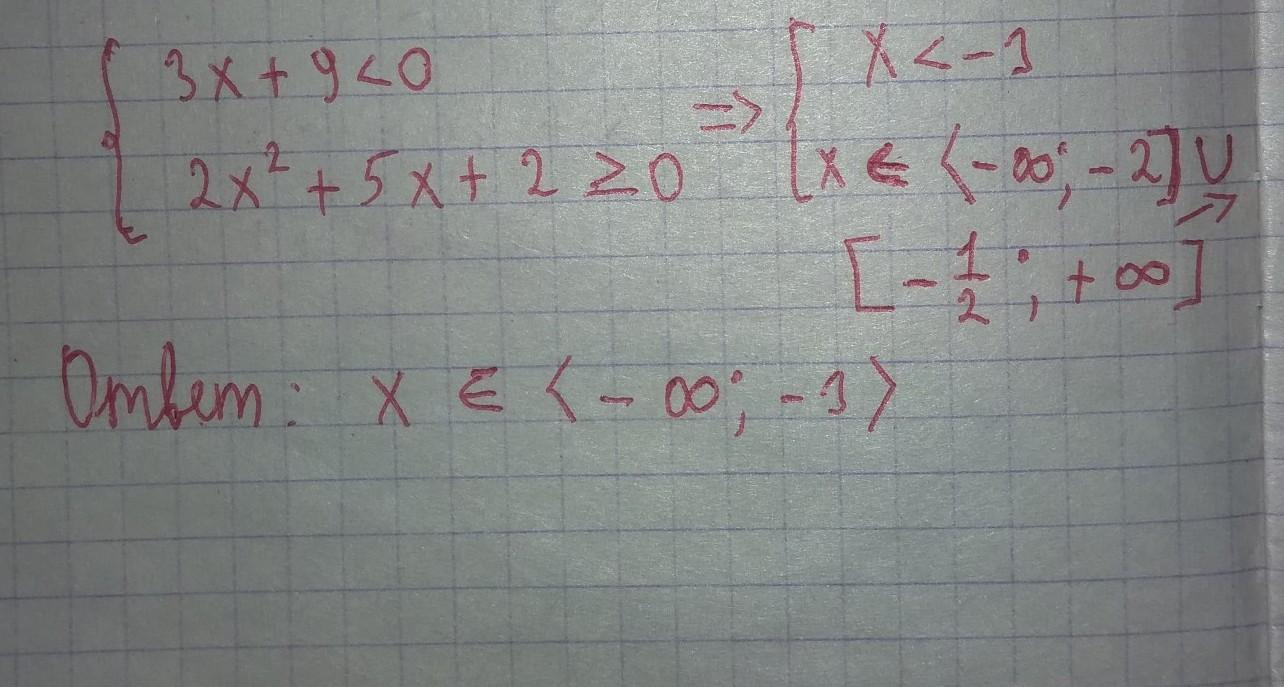 { 3x + 9 < 0 => { x < -3
2x² + 5x + 2 ≥ 0 x ∈ ⟨-∞; -2] ∪
[-1/2; +∞]
Ответ: x ∈ ⟨-∞; -3⟩